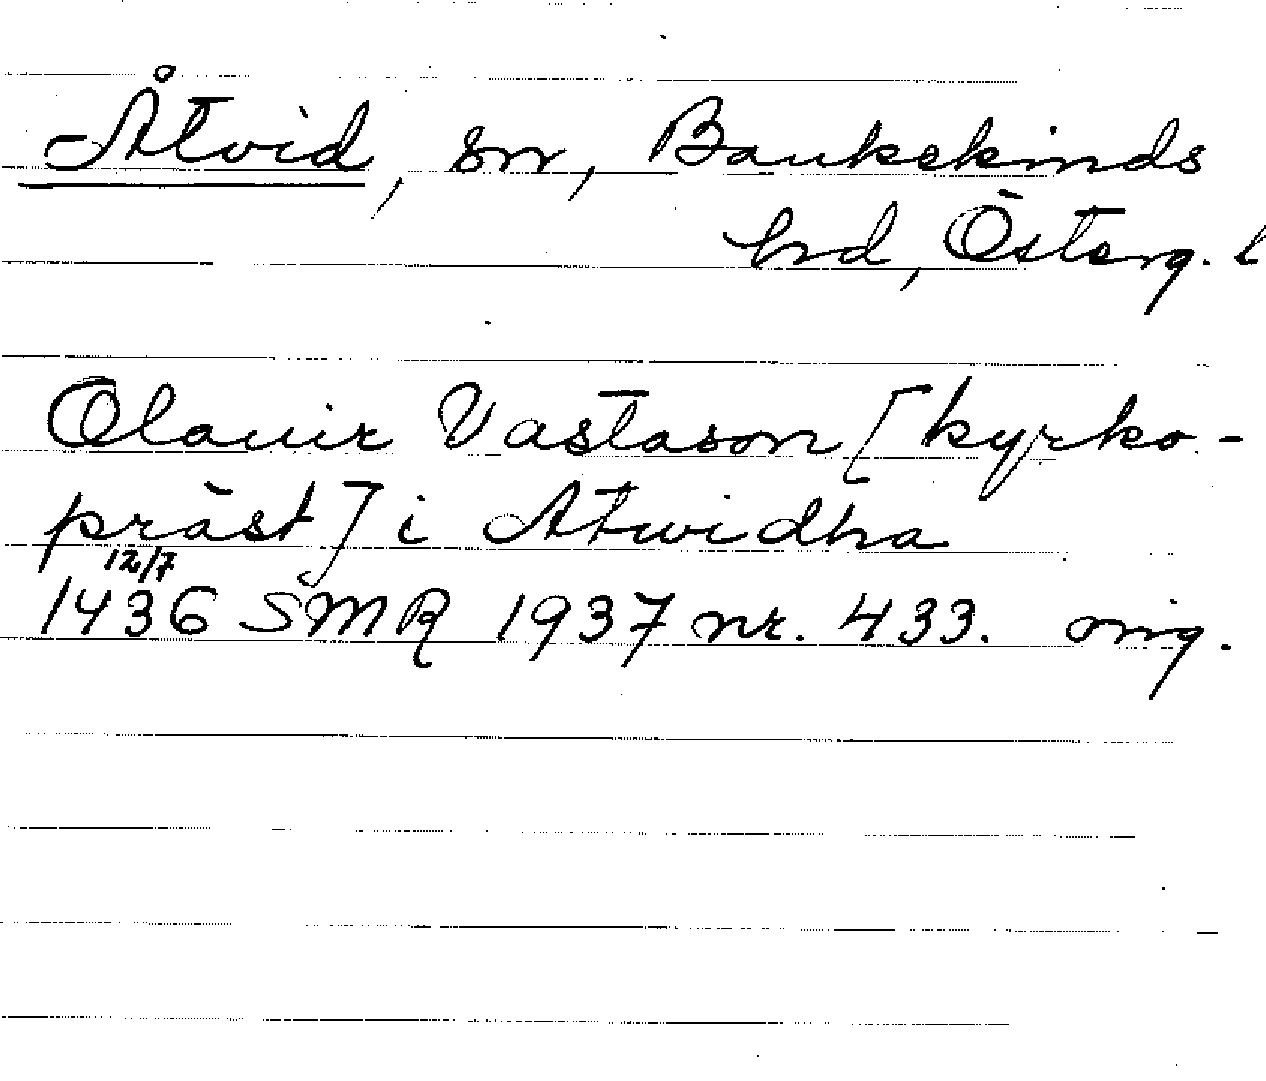 Åtvid, sn, Bankekinds
hd, Österg. l
Olauir Vastason [kyrko-
präst] i Atwidha
12/7
1436 SMR 1937 nr. 433. orig.